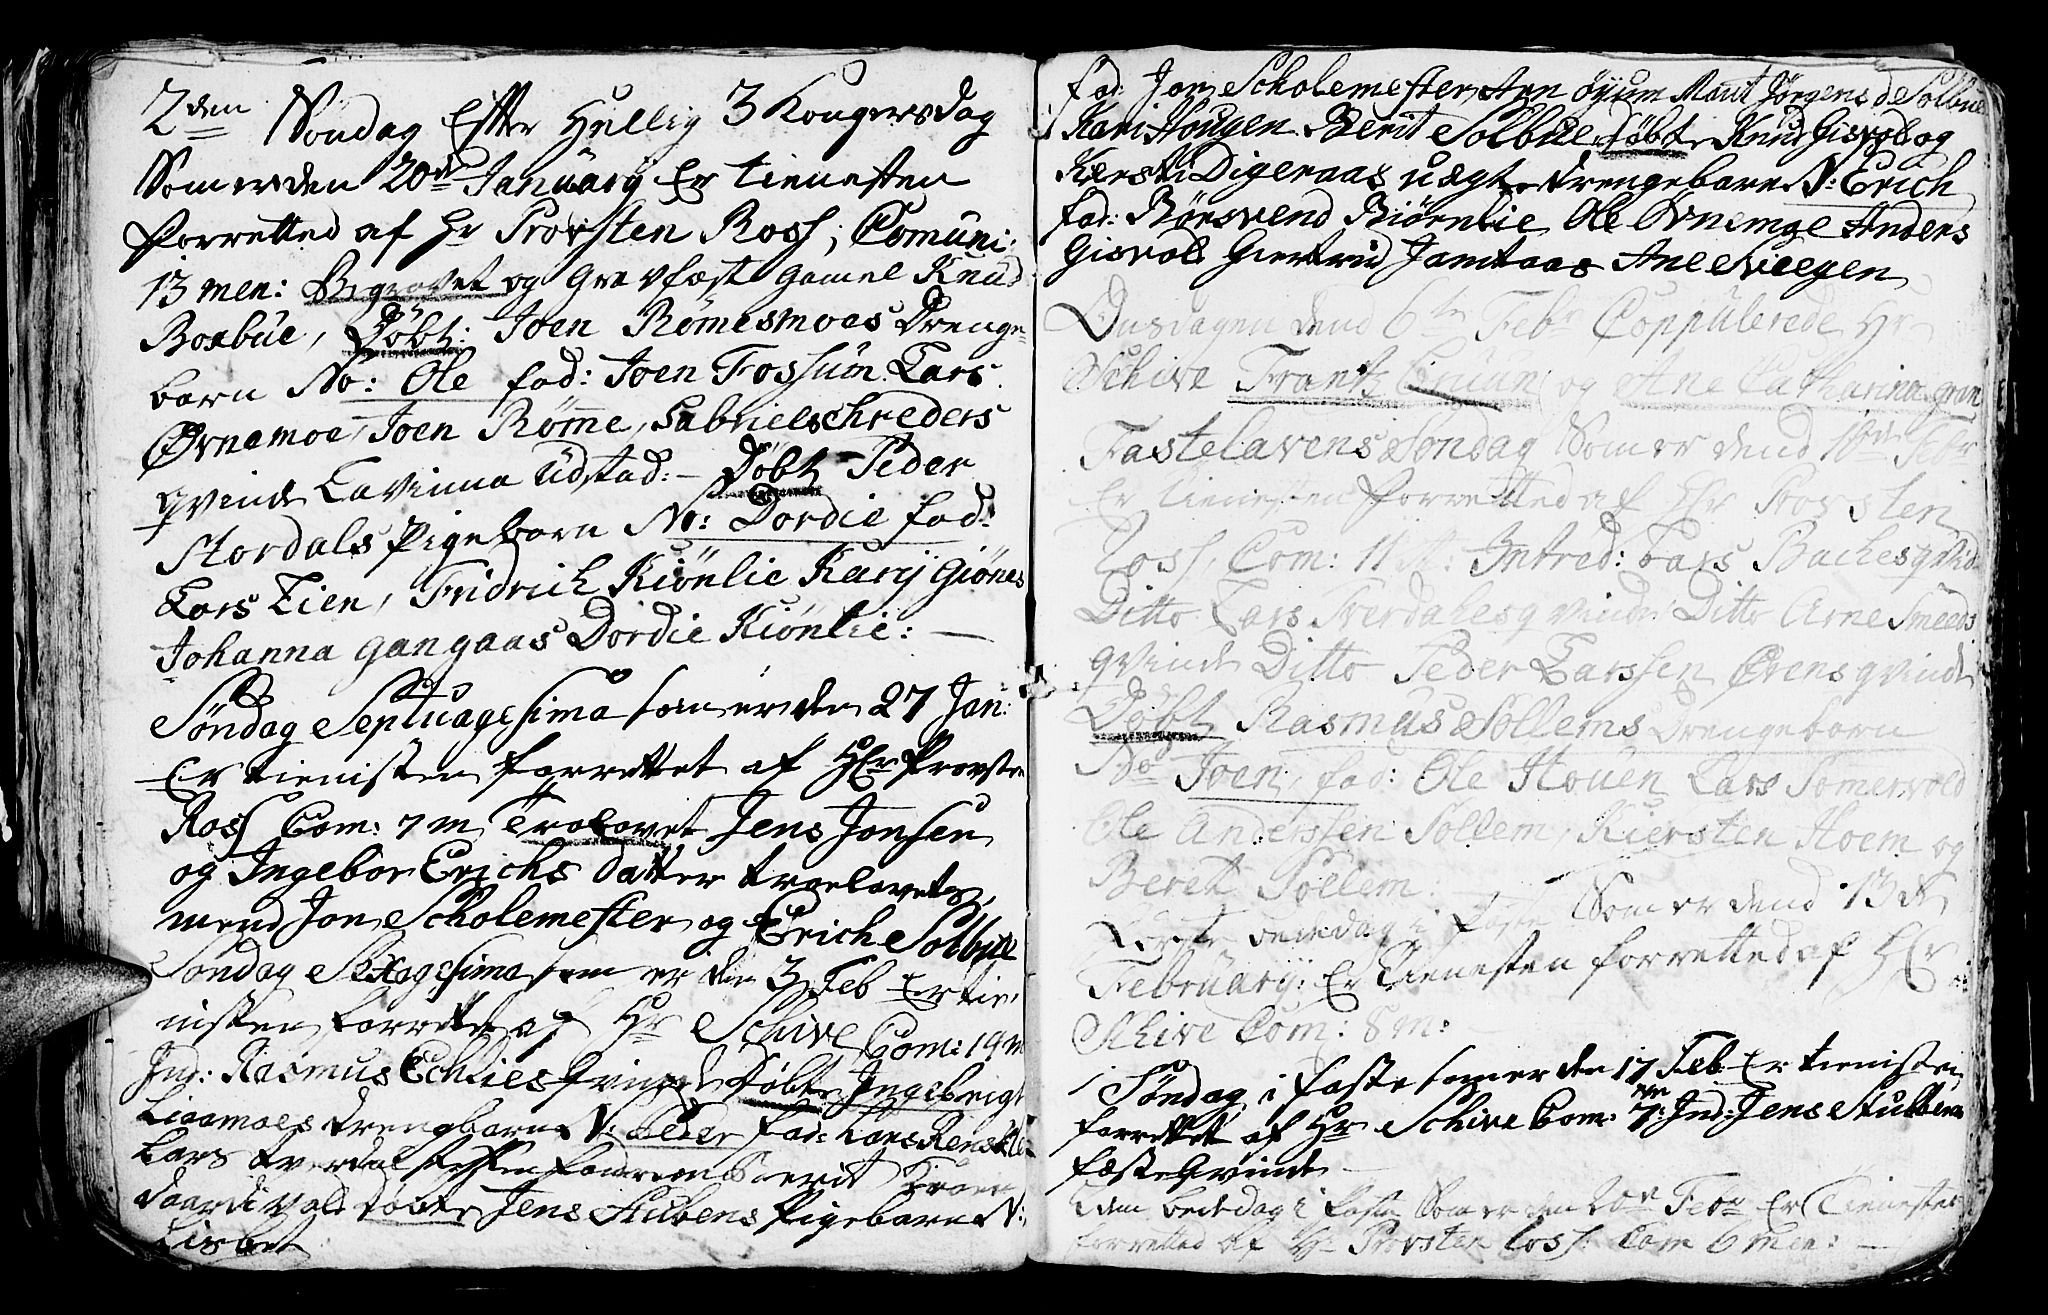 2den Søndag Efter Hellig 3 Kongersdag
Som er den 20de Januarij Er tienesten
forretted af Hr Provsten Ross, Comuni:
13 men: Begravet og gravfæst gamel Knud
Boxbüe, Døbt: Joen Rømesmoes Drenge
barn No: Ole fad: Joen Fossum Lars
Ørnemoe, Joen Rømme, Gabriel Schreders
qvinde Lavinna Udstad: – Døbt Peder
Stordals Pigebarn No: Dordie fad:
Lars Lien, Fridrich Kiönlie Karij Giönes
Johanna Gangaas Dordie Kiönlie: —
Søndag Septuagesima som er den 27 Jan:
Er tienisten forrettet af Hr Provsten
Ross Com: 7 m Trolovet Jens Jonsen
og Ingebor Erichs datter troelovets
mend Jon Scholemester og Erich Solbüe
Søndag Sexagesima som er den 3 Feb Er tie-
nisten forrettet af Hr Schive Com: 19 m
Ind: Rasmus Echlies Qvinde Døbt Ingebrigt
Liaamoes drengebarn N: Peder fad: Lars
Lars Berit
Døbt Jens Stubens Pigebarn N:
Lisbet
fad: Jon Scholemester Øyum Marit Jørgens d Solbue
Kari Hougen Berit Solbüe, Døbt Knud Gisvold og
Kersti Digeraas uægte drengebarn N: Erich
fad: Børsvend Biörnlie Ole Anders
Gisvold Giertrud Jamtaas Ane
Dend 6te Febr Coppulerede Hr
Schive Frantz Bruun og Ane Catharina gran
Fastelavens Søndag Som er dend 10de Febr
Er tienesten forretted af Hr Provsten
Ross, Com: 11 M: Introd: Lars Baches qvinde
Ditto Lars Sverdahls qvinde Ditto Arne Smeeds
qvinde Ditto Peder Larssen Ørens qvinde
Døbt Rasmus Sollems Drengebarn
No Joen, fad: Ole Houen Lars Somervold
Ole Anderssen Sollem, Kiersten Hoem og
Beret Sollem: —
Første bededag i faste Som er dend 13de
Februarij: Er Tienesten forretted af Hr
Schive Com: 8 m:
1 Søndag i faste som er den 17 Feb Er tienisten
forrettet af Hr Schive Com: 7: Ind: Jens Stubbens
fæste Qvinde
2den bededag i faste Som er den 20de Febr Er Tienesten
forretted af Hr Provsten Ross: Com 6 men: —